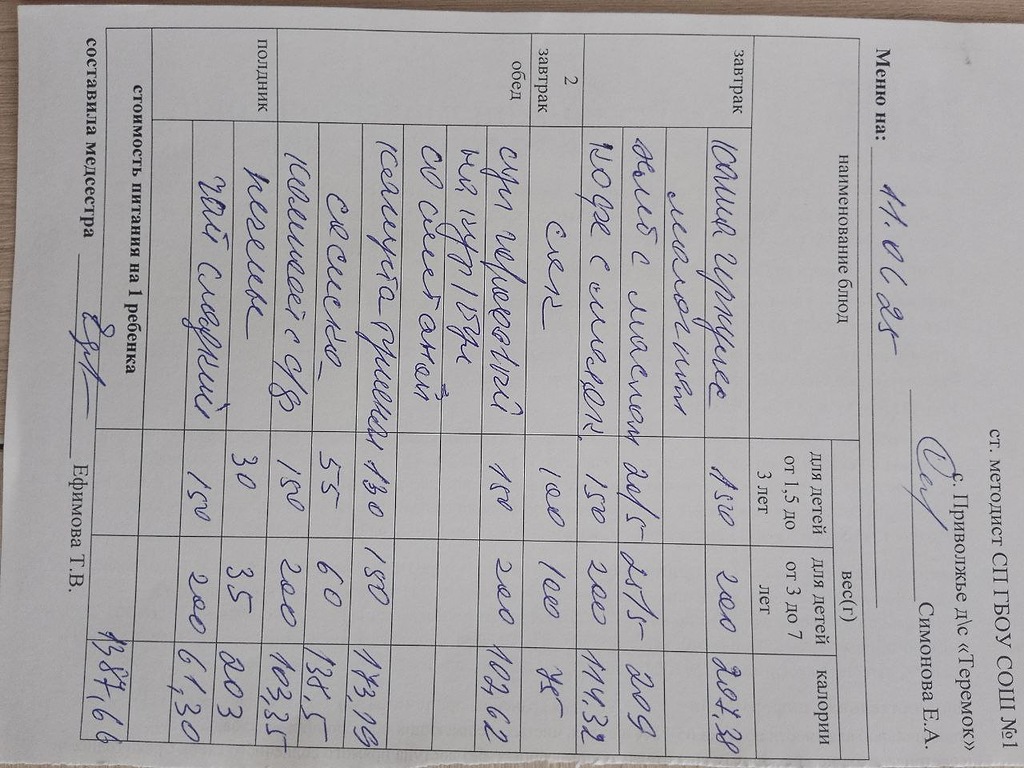 ст. методист СП ГБОУ СОШ №1
с. Приволжье д\с «Теремок»
Симонова Е.А.
Меню на: 11.06.25
наименование блюд вес(г) калории
для детей от 1,5 до 3 лет для детей от 3 до 7 лет
завтрак Каша 150 200 207,28
молочная
хлеб с маслом 20/5 25/5 209
кофе с молоком. 150 200 114.32
2 завтрак сок 100 100 45
обед суп гороховый 150 200 107,62
на кур
со сметаной
капуста тушеная 130 150 143,19
сосиска 55 60 138,5
компот с с/ф 150 200 103,35
полдник печенье 30 35 203
чай сладкий 150 200 61,30
стоимость питания на 1 ребенка 1387,66
составила медсестра Ефимова Т.В.